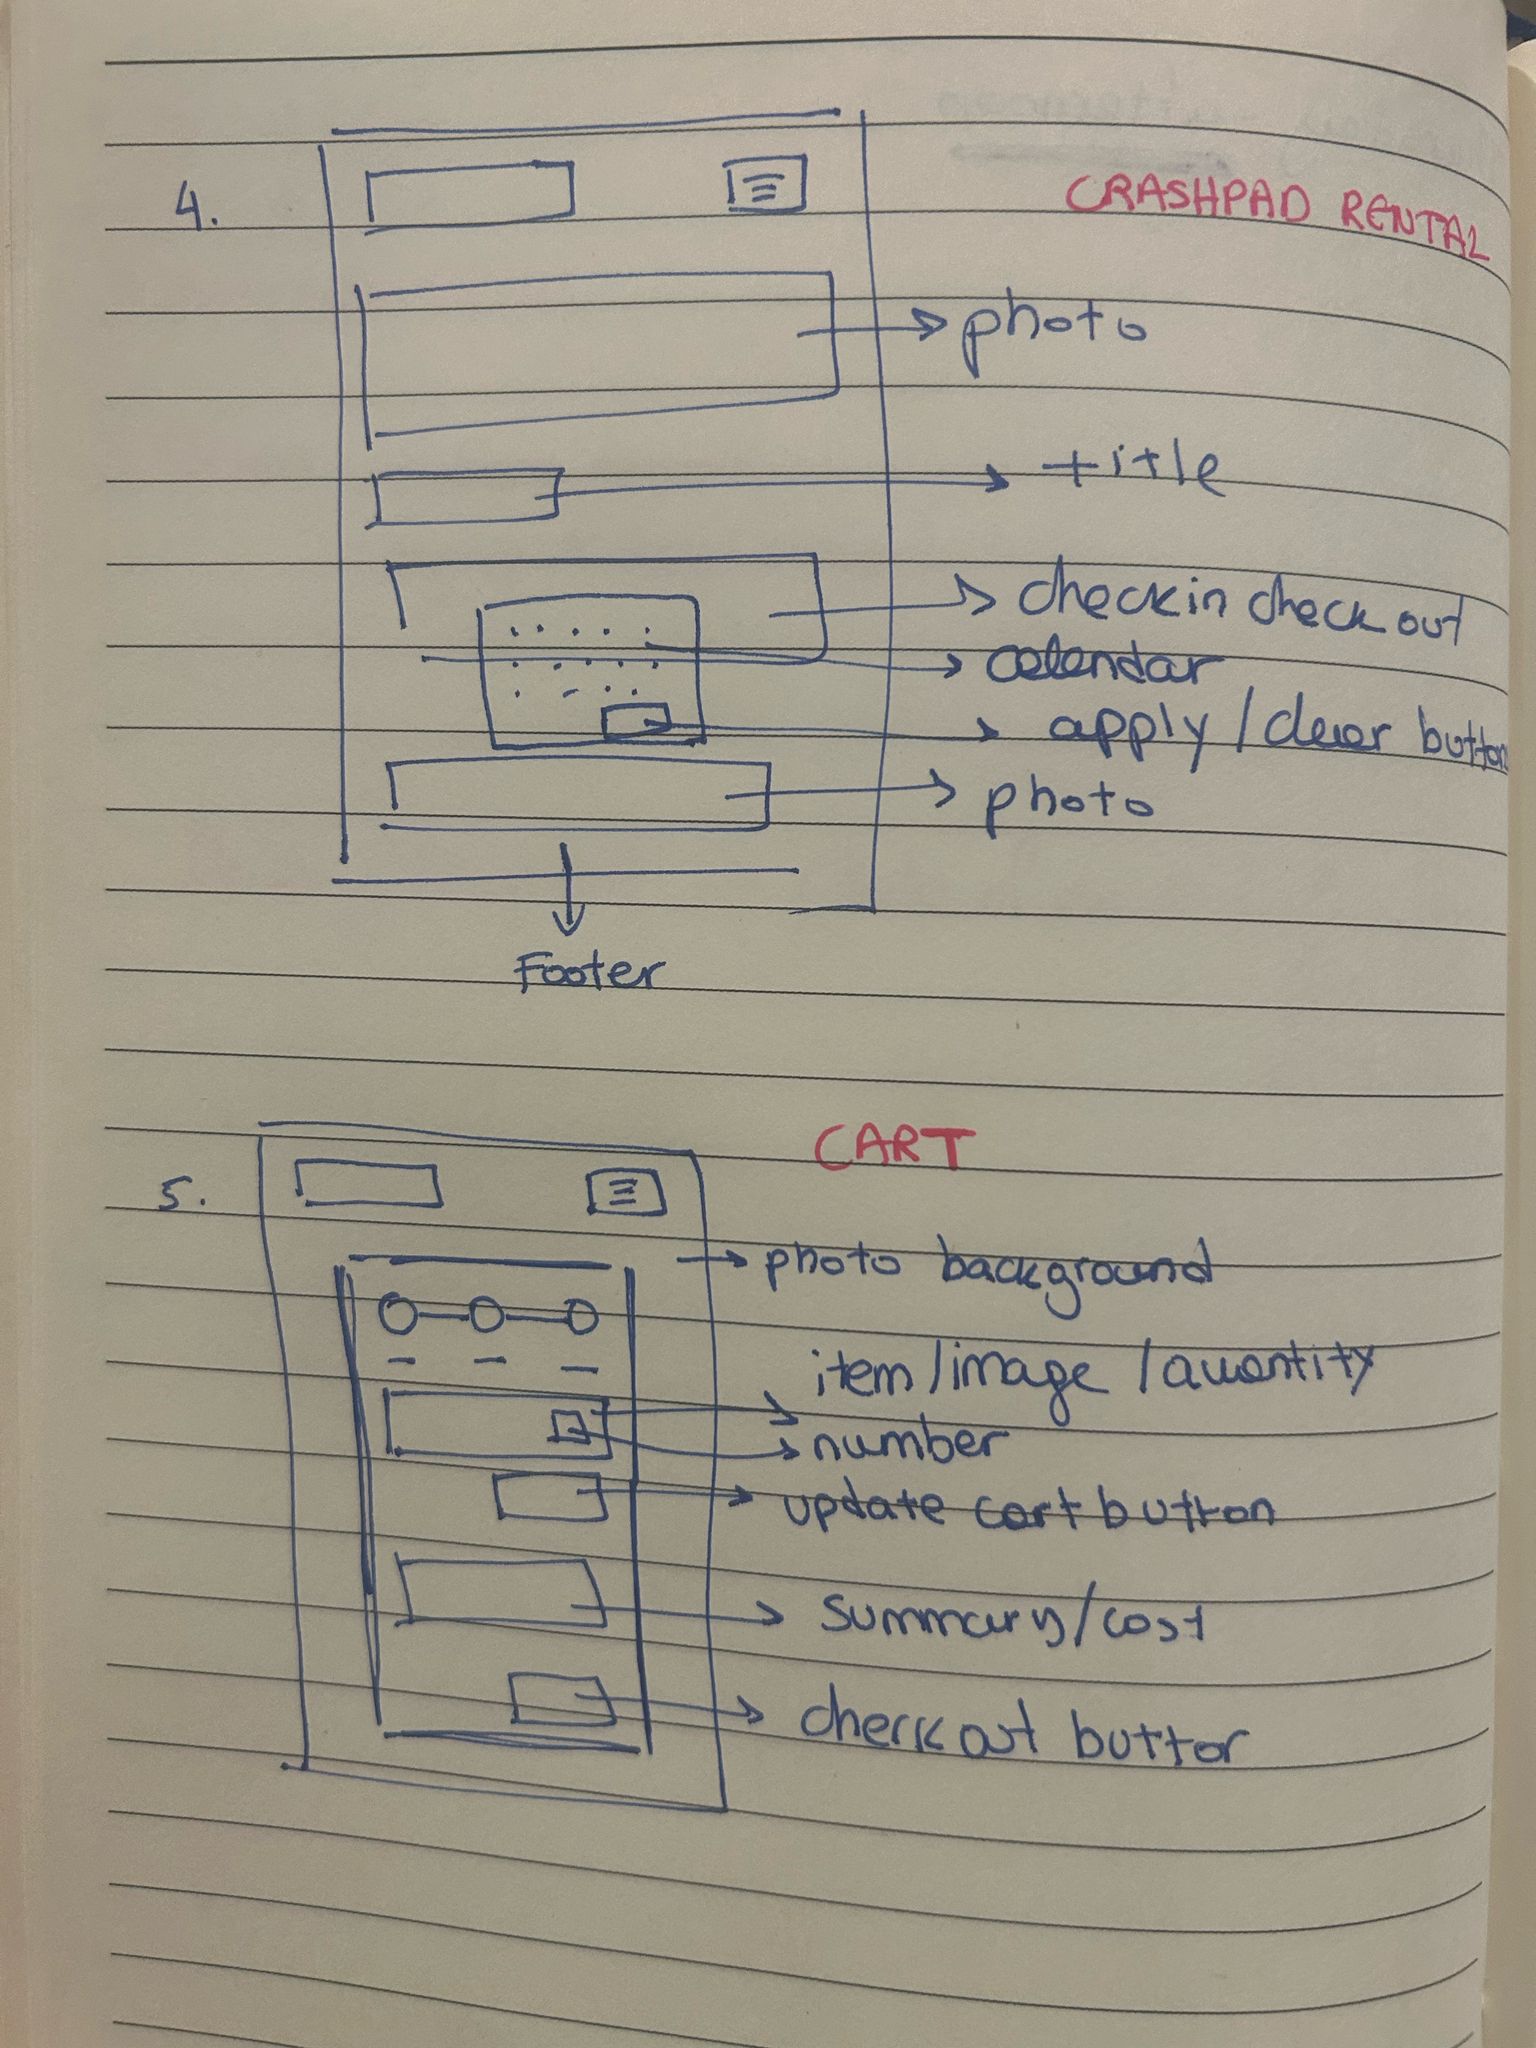 4.
CRASHPAD RENTAL
photo
title
checkin check out
calendar
apply / clear button
photo
Footer
5.
CART
photo background
item/image /quantity
number
update cart button
summary/cost
check out button